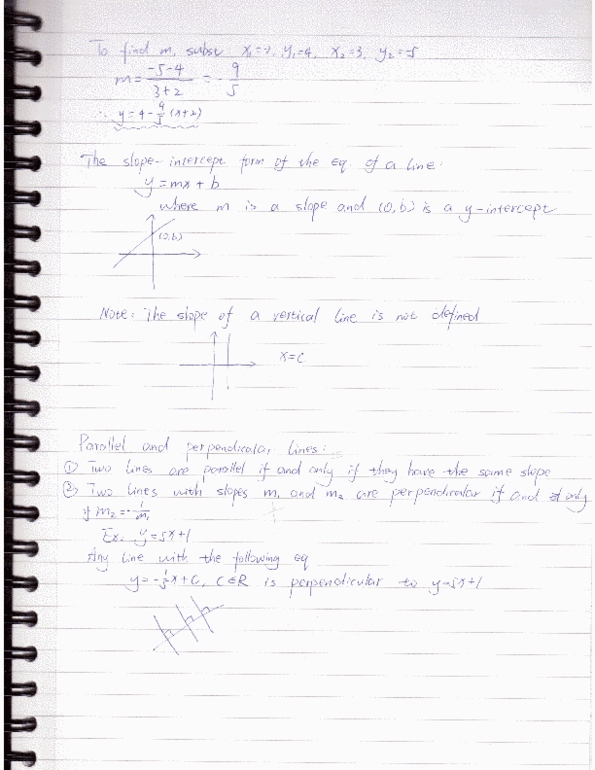 To find m, subst x₁=-2, y₁=4, x₂=3, y₂=-5
m = -5-4/3+2 = -9/5
∴ y=4-9/5(x+2)
The slope-intercept form of the eq. of a line:
y=mx+b
where m is a slope and (0,b) is a y-intercept
(0,b)
Note: The slope of a vertical line is not defined
x=c
Parallel and perpendicular lines:
① Two lines are parallel if and only if they have the same slope
② Two lines with slopes m₁ and m₂ are perpendicular if and only
if m₂=-1/m₁
Ex. y=5x+1
Any line with the following eq
y=-1/5x+C, C∈R is perpendicular to y=5x+1